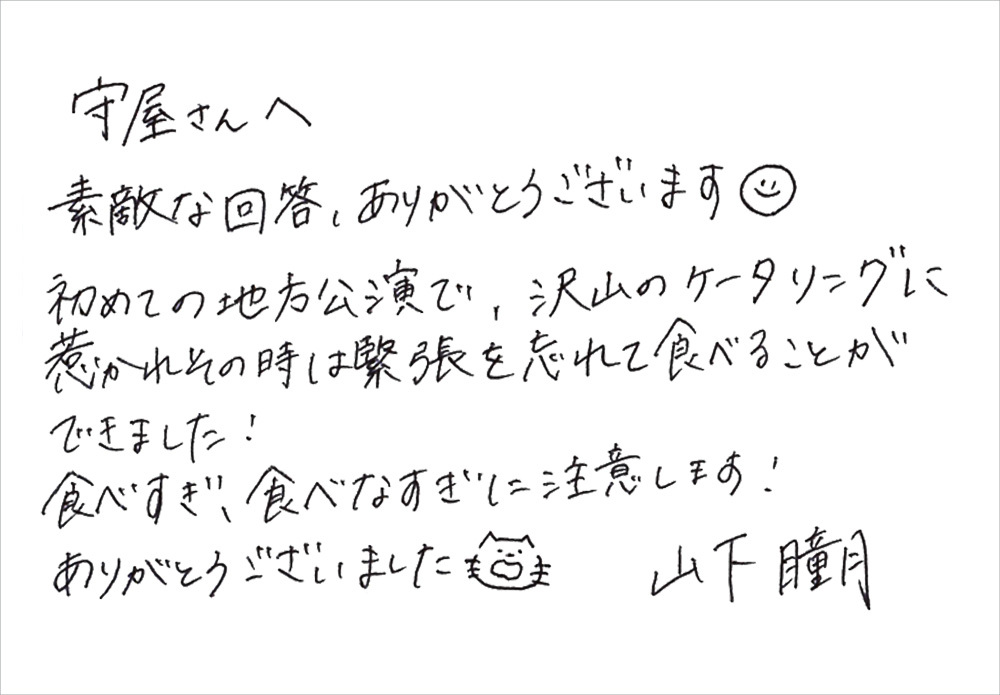 守屋さんへ
素敵な回答、ありがとうございます
初めての地方公演で、沢山のケータリングに
惹かれその時は緊張を忘れて食べることが
できました!
食べすぎ、食べなすぎに注意します!
ありがとうございました
山下瞳月